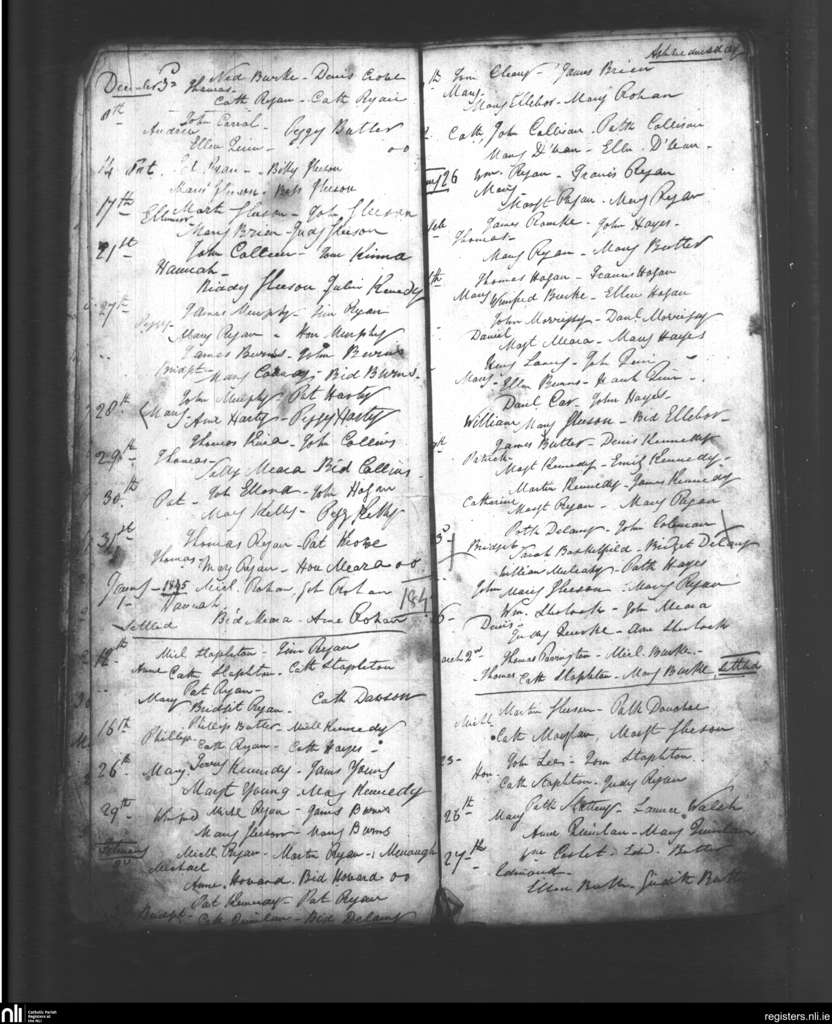 Decmber 3d Thomas Ned Burke - Denis Crowe
Cath Ryan - Cath Ryan
8th Andrew John Carral - Peggy Butler
Ellen Quin - 00
14 Pat. Ed. Ryan - Billy Gleeson
Mary Gleeson - Bess Gleeson
17th Ellenor Mark Gleeson - John Gleeson
Mary Brien - Judy Gleeson
21st John Colleen - Tom Kinna
Hannah -
Biddy Gleeson Julia Kenedy
27th James Murphy - Jim Ryan
Peggy - Mary Ryan - Hon Murphy
James Burns - John Burns
Bridget - Mary Collins - Bid Burns -
28th John Murphy - Pat Harty
Mary Anne Harty - Peggy Harty
29th Thomas - Thomas Kina - John Collins
Sally Meara Bid Collins
30th Pat - John Ellard - John Hogan
Mary Kelly - Peggy Kelly
31st Thomas Ryan - Pat Keose
Thomas - Mary Ryan - Hon Meara 00
Jany - 1845 Miel. Rohan, Joh Rohan
1 - Hannah 184
Settled Bid Meara - Anne Rohan
12th Miel Stapleton - Jim Ryan
Anne Cath Stapleton - Cath Stapleton
Pat Ryan -
Mary Bridget Ryan - Cath Dawson
16th Phillip Butler - Miell Kennedy
Phillip Cath Ryan - Cath Hayes -
26th Mary. Jerry Kennedy - James Young
Margt Young - Mary Kennedy
29th Winifred Michl Ryan - James Burns
Mary Gleeson - Mary Burns
February Miell Ryan - Martin Ryan - Menaugh
2d Michael
Anne Howard. Bid Howard 00
Pat Kennedy - Pat Ryan
Bridget - Cath Quinlan - Bid Delany
Ashwednesday
th Tom Cleary - James Brien
Mary - Mary Ellebor - Mary Rohan
Cath John Collison - Path Collison
Mary D'wan - Ellen D'wan -
26 Wm Ryan - Francis Ryan
Mary - Margt Ryan - Mary Ryan
James Rourke - John Hayes -
Thomas - Mary Ryan - Mary Butler
th Thomas Hogan - Francis Hogan
Mary Winifred Burke - Ellen Hogan
John Morrissy - Danl Morrissy
Daniel Margt Meara - Mary Hayes
Mary - Ellen Burns - Hanh Quin -
Danl Car - John Hayes -
William Mary Gleeson - Bid Ellebor -
James Butler - Denis Kennedy
Patrick - Margt Kennedy - Emily Kennedy -
Martin Kennedy - James Kennedy
Catharine Margt Ryan - Mary Ryan
Path Delany - John Coleman
3d Bridget Sarah Basketfield - Bridget Delany
William Mulcahy - Path Hayes
John Mary Gleeson - Mary Ryan
6 - Wm. Sherlock - John Meara
Denis - Judy Rourke - Anne Sherlock
March 2d Thomas Parrington - Miel. Burke -
Thomas Cath Stapleton - Mary Burke, settled
Miell - Martin Gleeson - Path Donohoe
Cath Moylan, Margt Gleeson
23 - John Lees - Tom Stapleton
Hon. Cath Stapleton - Judy Ryan
26th Mary Path Slattery - Laurence Walsh
Anne Quinlan - Mary Quinlan
27th Edw. Butler
Edmond -
Ellen Butler - Judith Butler
nli Catholic Parish Registers at the NLI
registers.nli.ie